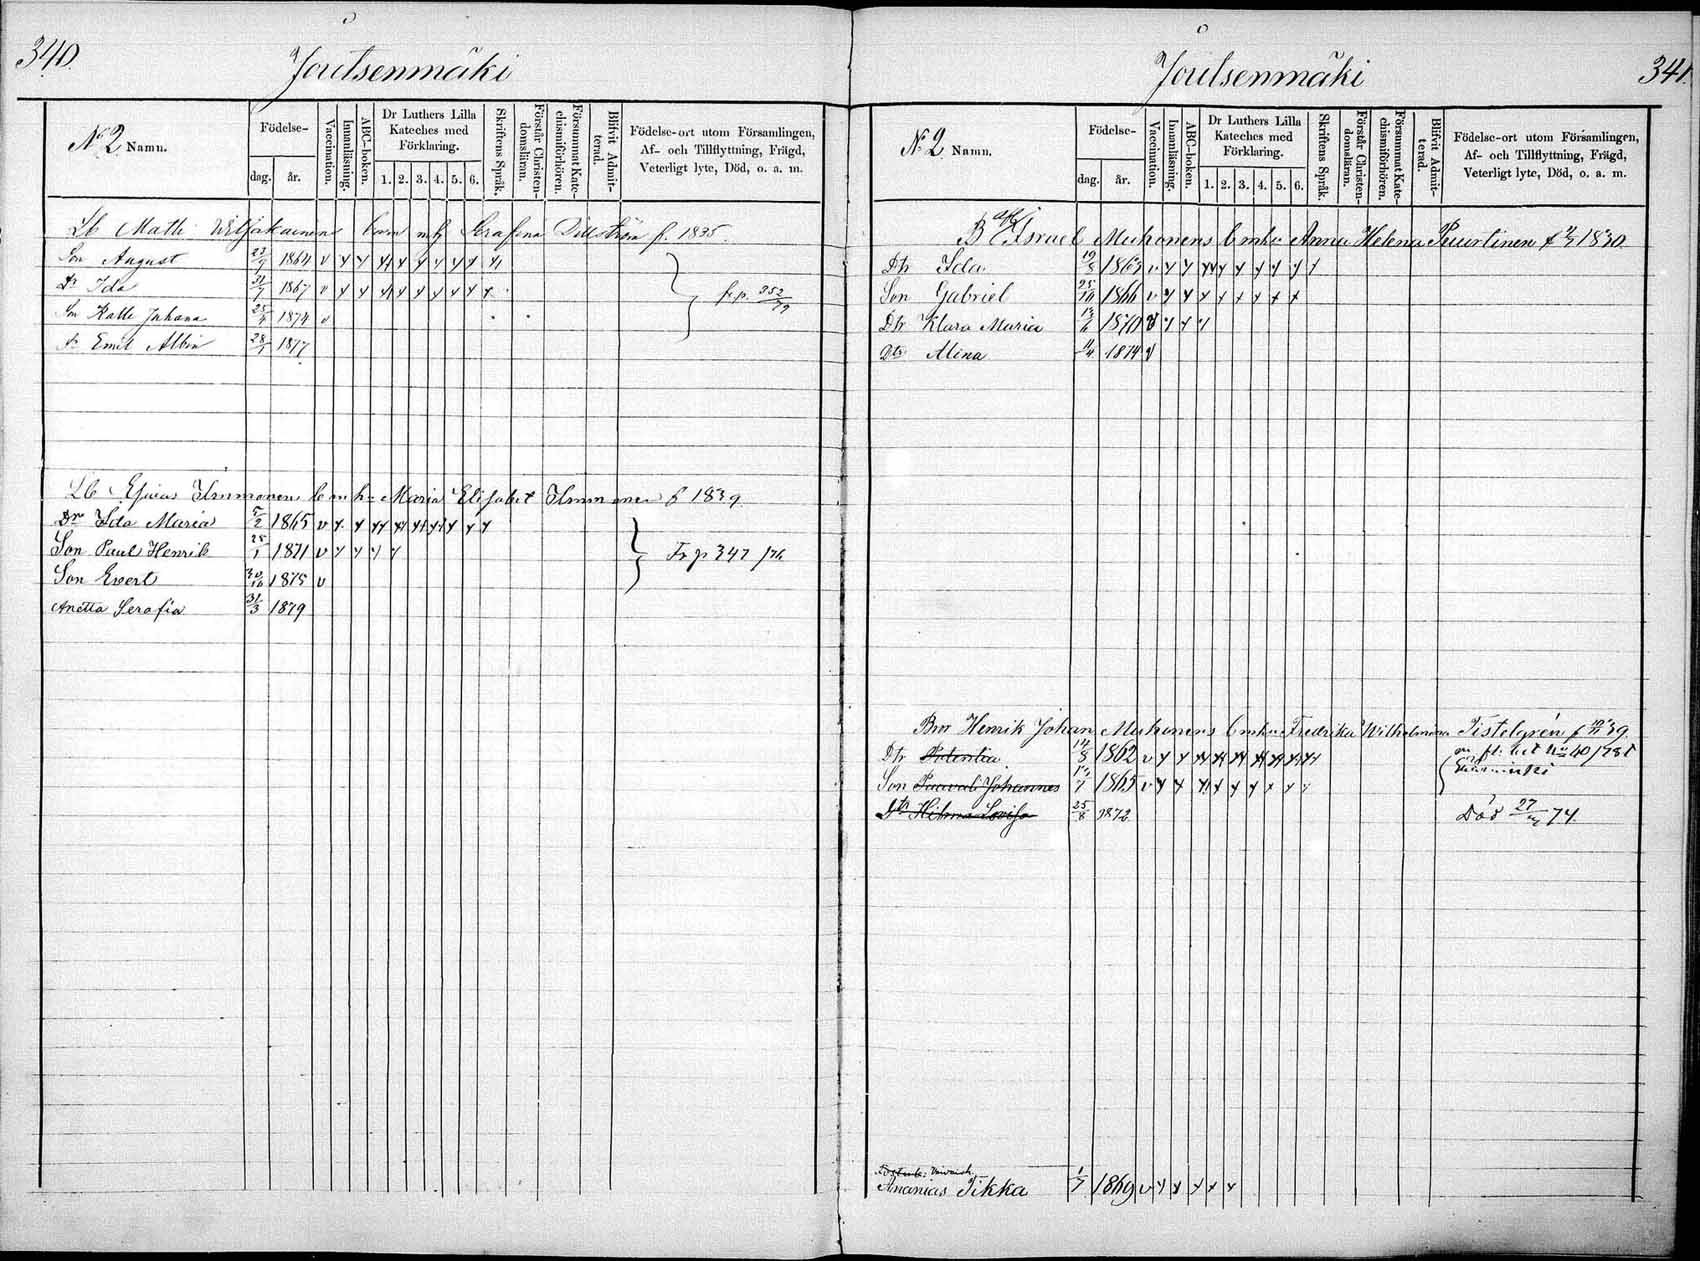 340.
Joutsenmäki
N:o 2 Namn.
Födelse-
dag. år.
Vaccination.
Innanläsning.
ABC-boken.
Dr Luthers Lilla Kateches med Förklaring.
1. 2. 3. 4. 5. 6.
Skriftens Språk.
Förstår Christendomsläran.
Försummat Katechismiförhören.
Blifvit Admitterad.
Födelse-ort utom Församlingen, Af- och Tillflyttning, Frägd, Veterligt lyte, Död, o. a. m.
Lb Matts barn m h Serafina f. 1835.
Son August 1864 v
Dr Ida 31/7 1867 v fr p. 352/79
Son Kalle Juhana 25/4 1874 v
Emil Albin 28/1 1877
Lb Ilmmonens b m h Maria Elisabet Ilmmonen f 1839
Dr Ida Maria 5/2 1865 v
Son Paul Henrik 25/1 1871 v Fr p 347
Son Evert 30/10 1875 v
Anetta Serafia 31/3 1879
341.
Joutsenmäki
N:o 2 Namn.
Födelse-
dag. år.
Vaccination.
Innanläsning.
ABC-boken.
Dr Luthers Lilla Kateches med Förklaring.
1. 2. 3. 4. 5. 6.
Skriftens Språk.
Förstår Christendomsläran.
Försummat Katechismiförhören.
Blifvit Admitterad.
Födelse-ort utom Församlingen, Af- och Tillflyttning, Frägd, Veterligt lyte, Död, o. a. m.
Israel Muhonens b m h Anna Helena Puurtinen 1830
Dtr Ida 1863 v
Son Gabriel 25/10 1866 v
Dtr Klara Maria 13/6 1870 v
Dtr Alina 11/4 1874 v
Bror Henrik Johan Muhonens b m h Fredrika Wilhelmina Tistelgrén f 39
Dtr 14/8 1862 v
Son Johannes 1865 v
Dtr Hilma Lovisa 25/8 1872 Död 27/ 74
Ananias Tikka 1/7 1869 v